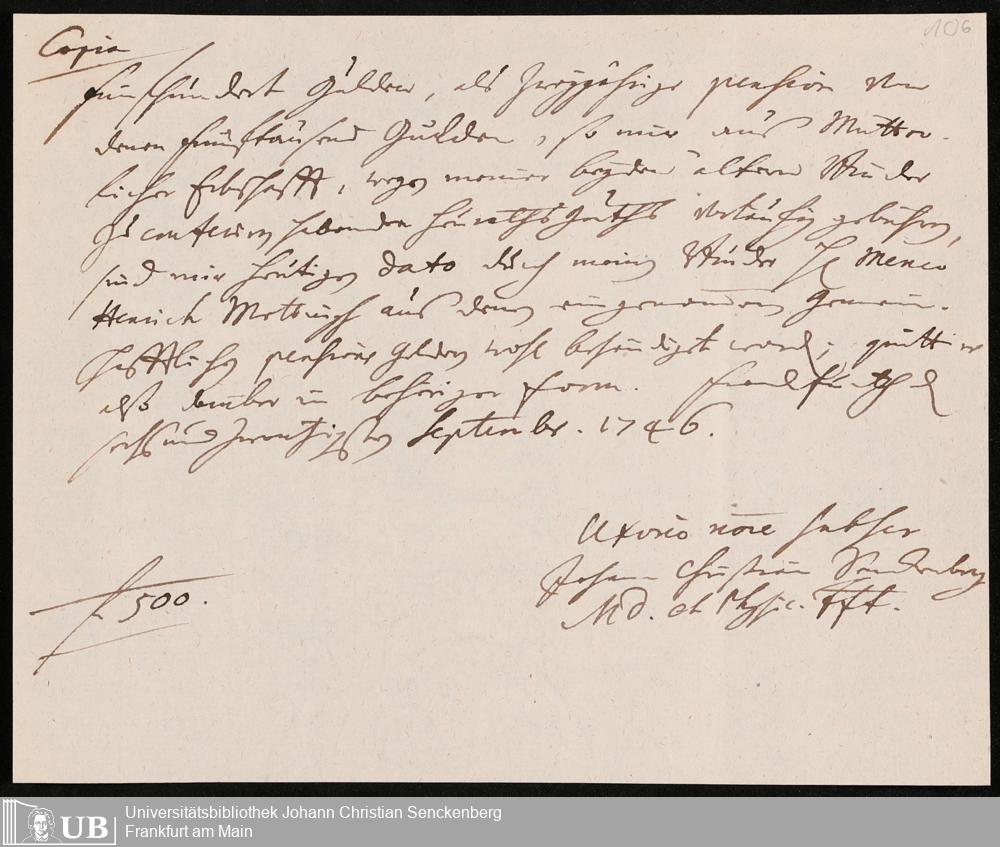 106
Copia
fünfhundert Gulden, als zweyjährige pension von
denen fünftausend Gulden, so mir aus Mütter-
licher Erbschafft, wegen meiner beyden ältern Brüder
zu conferiren habenden Heuraths Guths vorläufig gebühren,
sind mir heutigen dato durch meinen Bruder H Menco
Henrich Mettingh aus denen eingenommenen Gemein-
schafftlichen pensions Geldern wohl behändiget worden; quittire
also darüber in behöriger Form. Franckfurth d
sechs und zwantzigsten September. 1746.
Uxorio noie subscr
Johann Christian Senckenberg
MD. et Physic. Fft.
f 500.
UB
Universitätsbibliothek Johann Christian Senckenberg
Frankfurt am Main